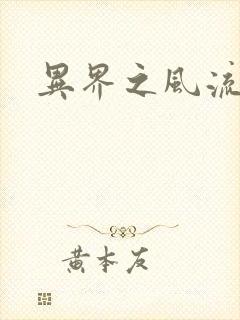 異界之風流
黃本友